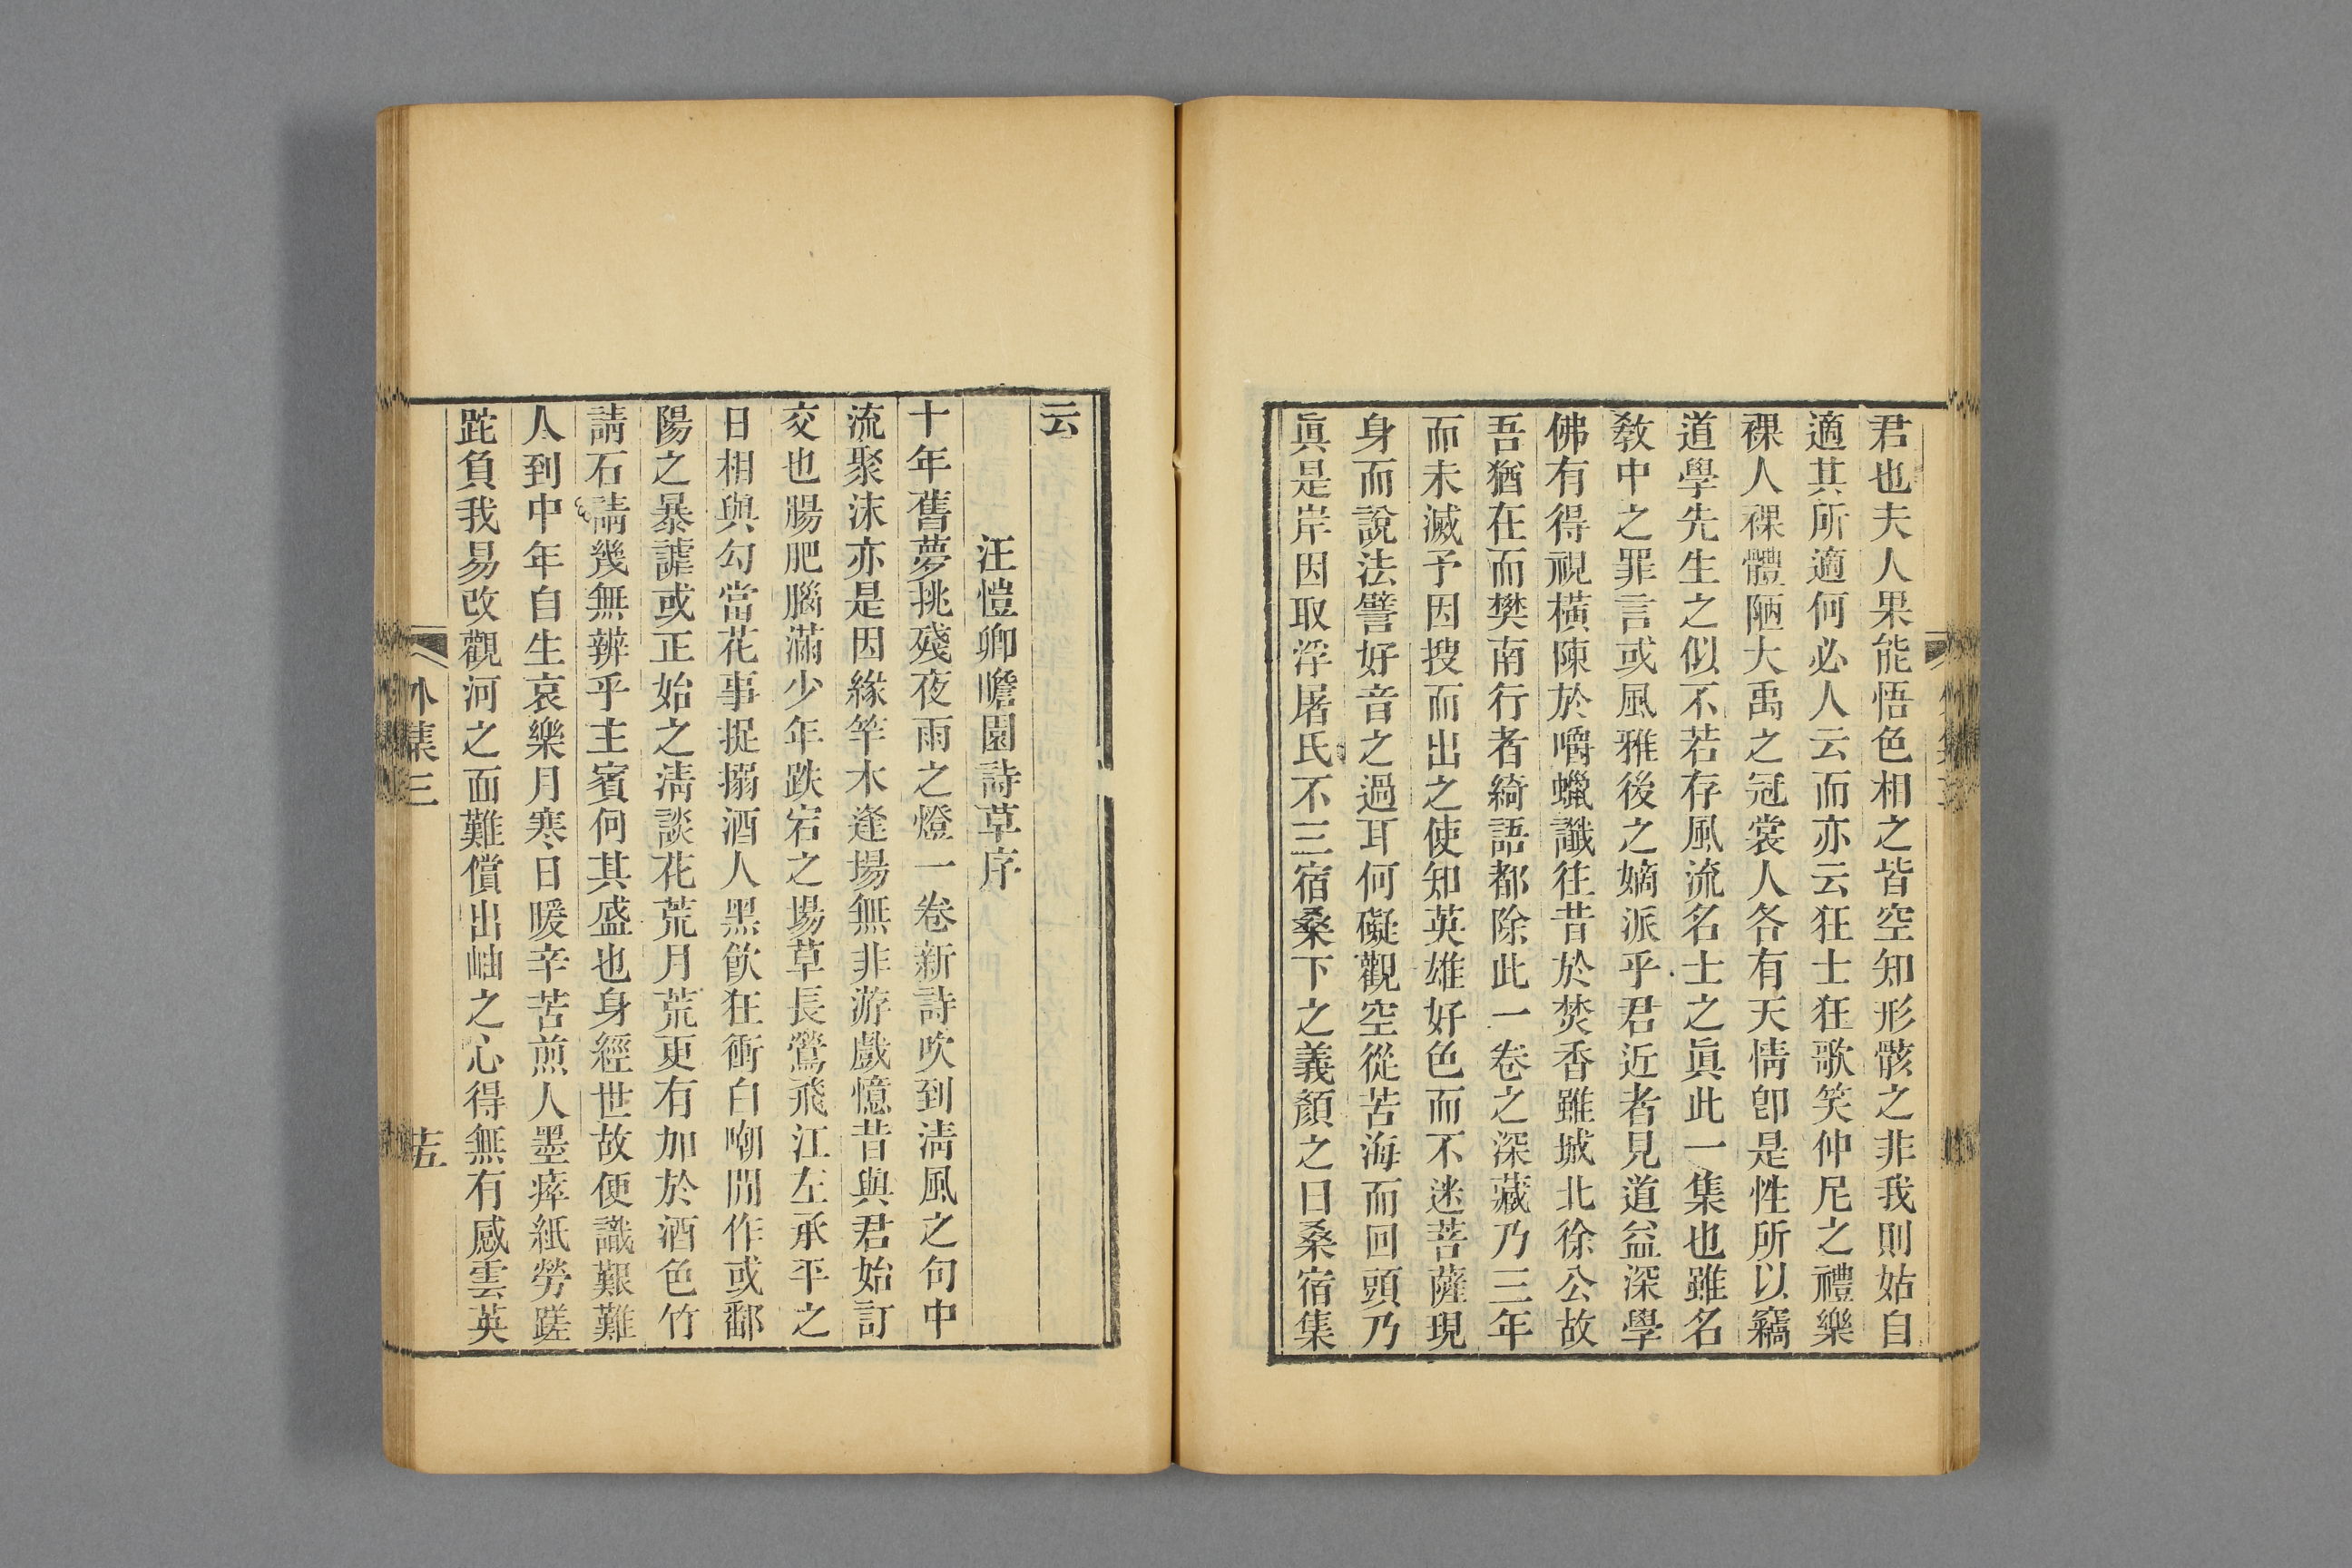 君也夫人果能悟色相之皆空知形骸之非我則姑自
適其所適何必人云而亦云狂士狂歌笑仲尼之禮樂
裸人裸體陋大禹之冠裳人各有天情卽是性所以竊
道學先生之似不若存風流名士之眞此一集也雖名
敎中之罪言或風雅後之嫡派乎君近者見道益深學
佛有得視橫陳於嚼蠟讖往昔於焚香雖城北徐公故
吾猶在而樊南行者綺語都除此一卷之深藏乃三年
而未滅予因搜而出之使知英雄好色而不迷菩薩現
身而說法譬好音之過耳何礙觀空從苦海而回頭乃
眞是岸因取浮屠氏不三宿桑下之義顏之曰桑宿集
云
汪愷卿瞻園詩草序
十年舊夢挑殘夜雨之燈一卷新詩吹到淸風之句中
流聚沫亦是因緣竿木逢場無非游戲憶昔與君始訂
交也腸肥腦滿少年跌宕之場草長鶯飛江左承平之
日相與勾當花事捉搦酒人黑飮狂衝白嘲閒作或鄱
陽之暴謔或正始之淸談花荒月荒更有加於酒色竹
請石請幾無辨乎主賓何其盛也身經世故便識艱難
人到中年自生哀樂月寒日暖辛苦煎人墨瘁紙勞蹉
跎負我易改觀河之面難償出岫之心得無有感雲英
外集三
十五